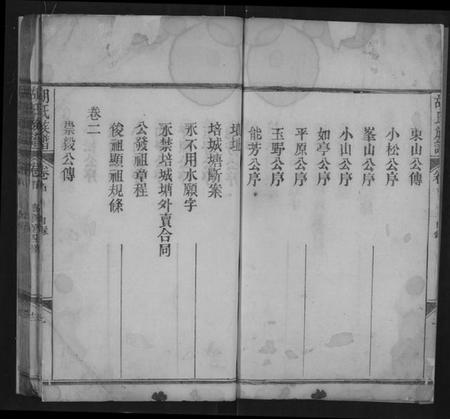 東山公傳
小松公序
峯山公序
小山公序
如亭公序
平原公序
玉野公序
能芳公序
墳址
培城塘斷案
永不用水願字
永禁培城塘外賣合同
公發祖章程
俊祖顯祖規條
卷二
崇鋑公傳
胡氏族譜